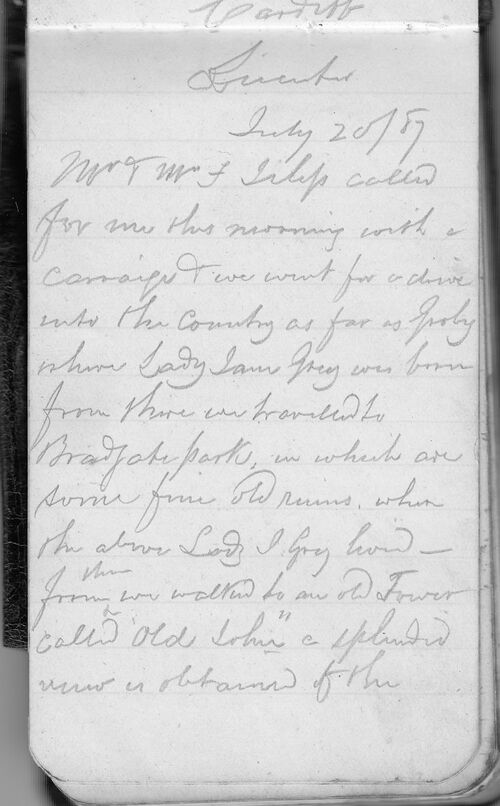 Cardiff
Leicester
July 20/87
Mr & Mrs F called
for me this morning with a
carraige & we went for a drive
into the Country as far as Groby
where Lady Jane Grey was born
from there we travelled to
Bradgate park, in which are
some fine old ruins, where
the above Lady J. Grey lived —
from then we walked to an old Tower
called Old John" a splendid
view is obtained of the